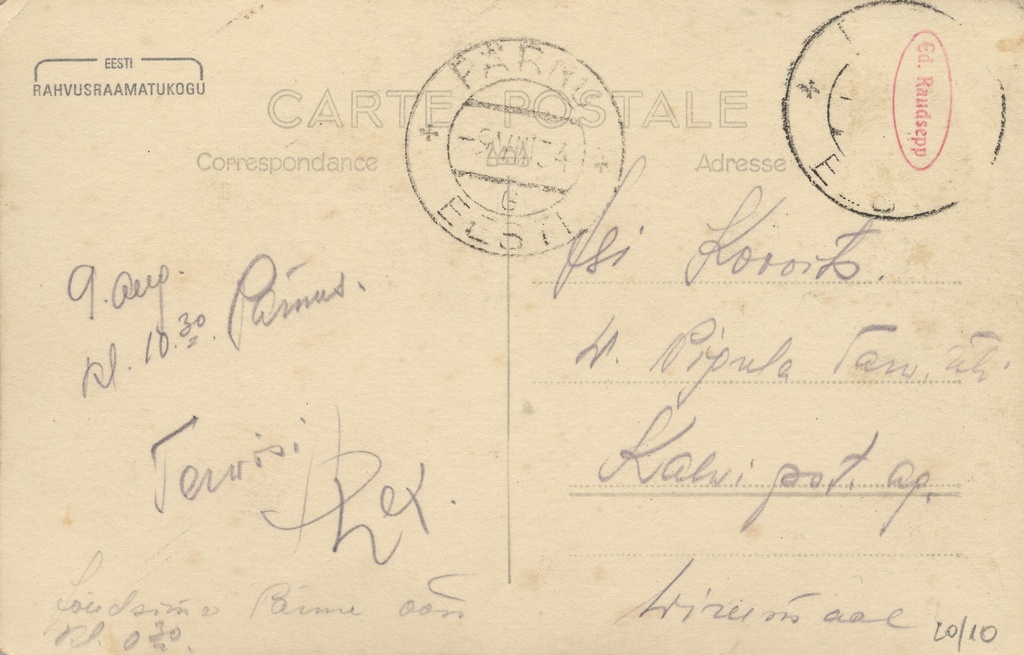 EESTI
RAHVUSRAAMATUKOGU
CARTE POSTALE
Correspondance
Adresse
PÄRNU
EESTI
G
Ed. Raudsepp
9. aug.
kl. 10.30. Pärnus.
Tervisi
Rex.
Pärnu
kl. 0.30.
Korv. 
W. Pigula Tarw. üh.
Kalvi post. ag.
Wirumaal
20/10